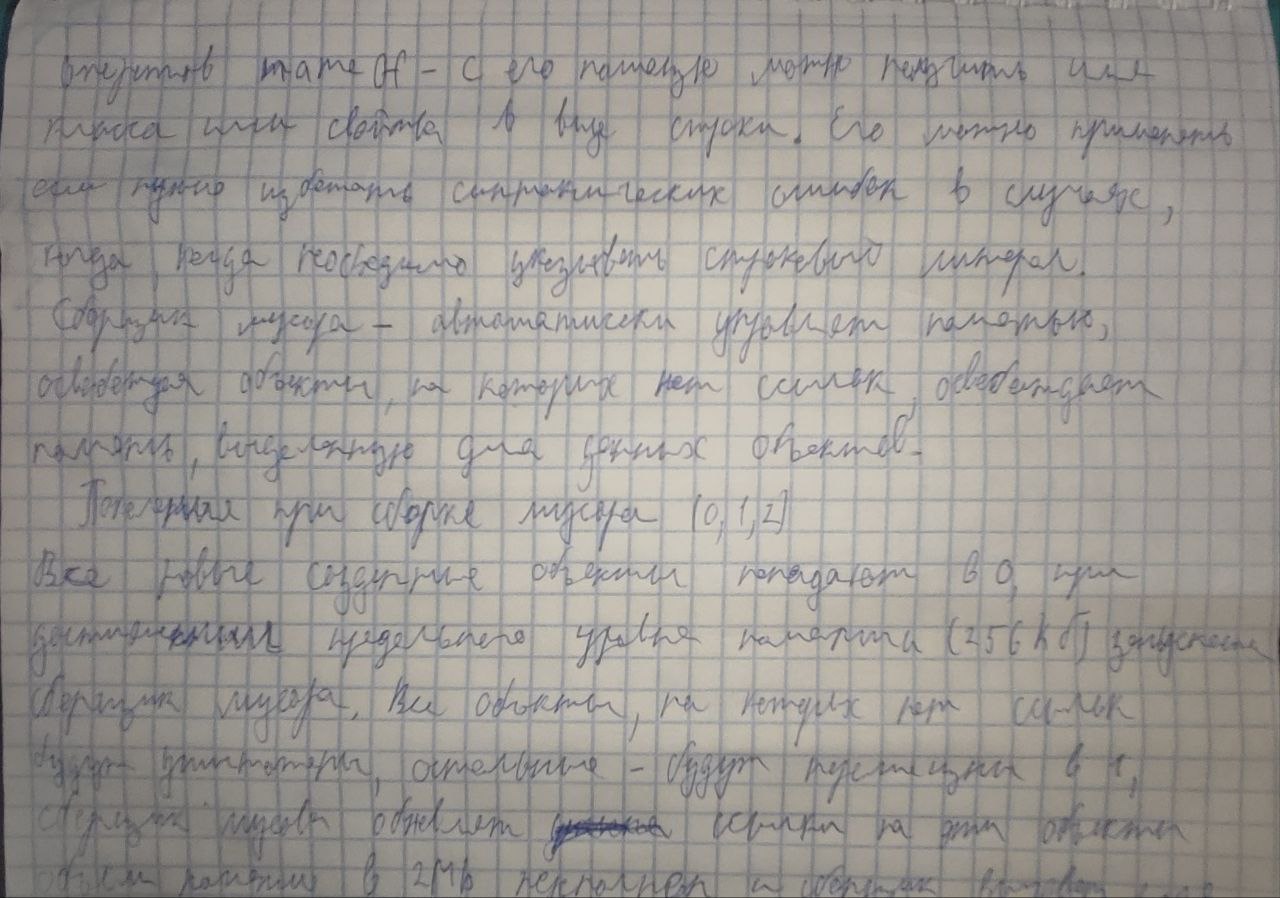 оператор nameof - с его помощью можно получить имя
класса или свойства в виде строки. Его можно применять
если нужно избежать синтаксических ошибок в случаях,
когда, когда необходимо указывать строковый литерал.
Сборщик мусора - автоматически управляет памятью,
освобождая объекты, на которых нет ссылок, освобождает
память, выделенную для данных объектов.
Поколения при сборке мусора (0,1,2)
Все новые созданные объекты попадают в 0, при
достижении предельного уровня памяти (256 Кб) запускается
сборщик мусора. Все объекты, на которых нет ссылок
будут уничтожены, остальные - будут перемещены в 1,
сборщик мусора обновляет ссылки на эти объекты
объем памяти в 2Мб и сборщик